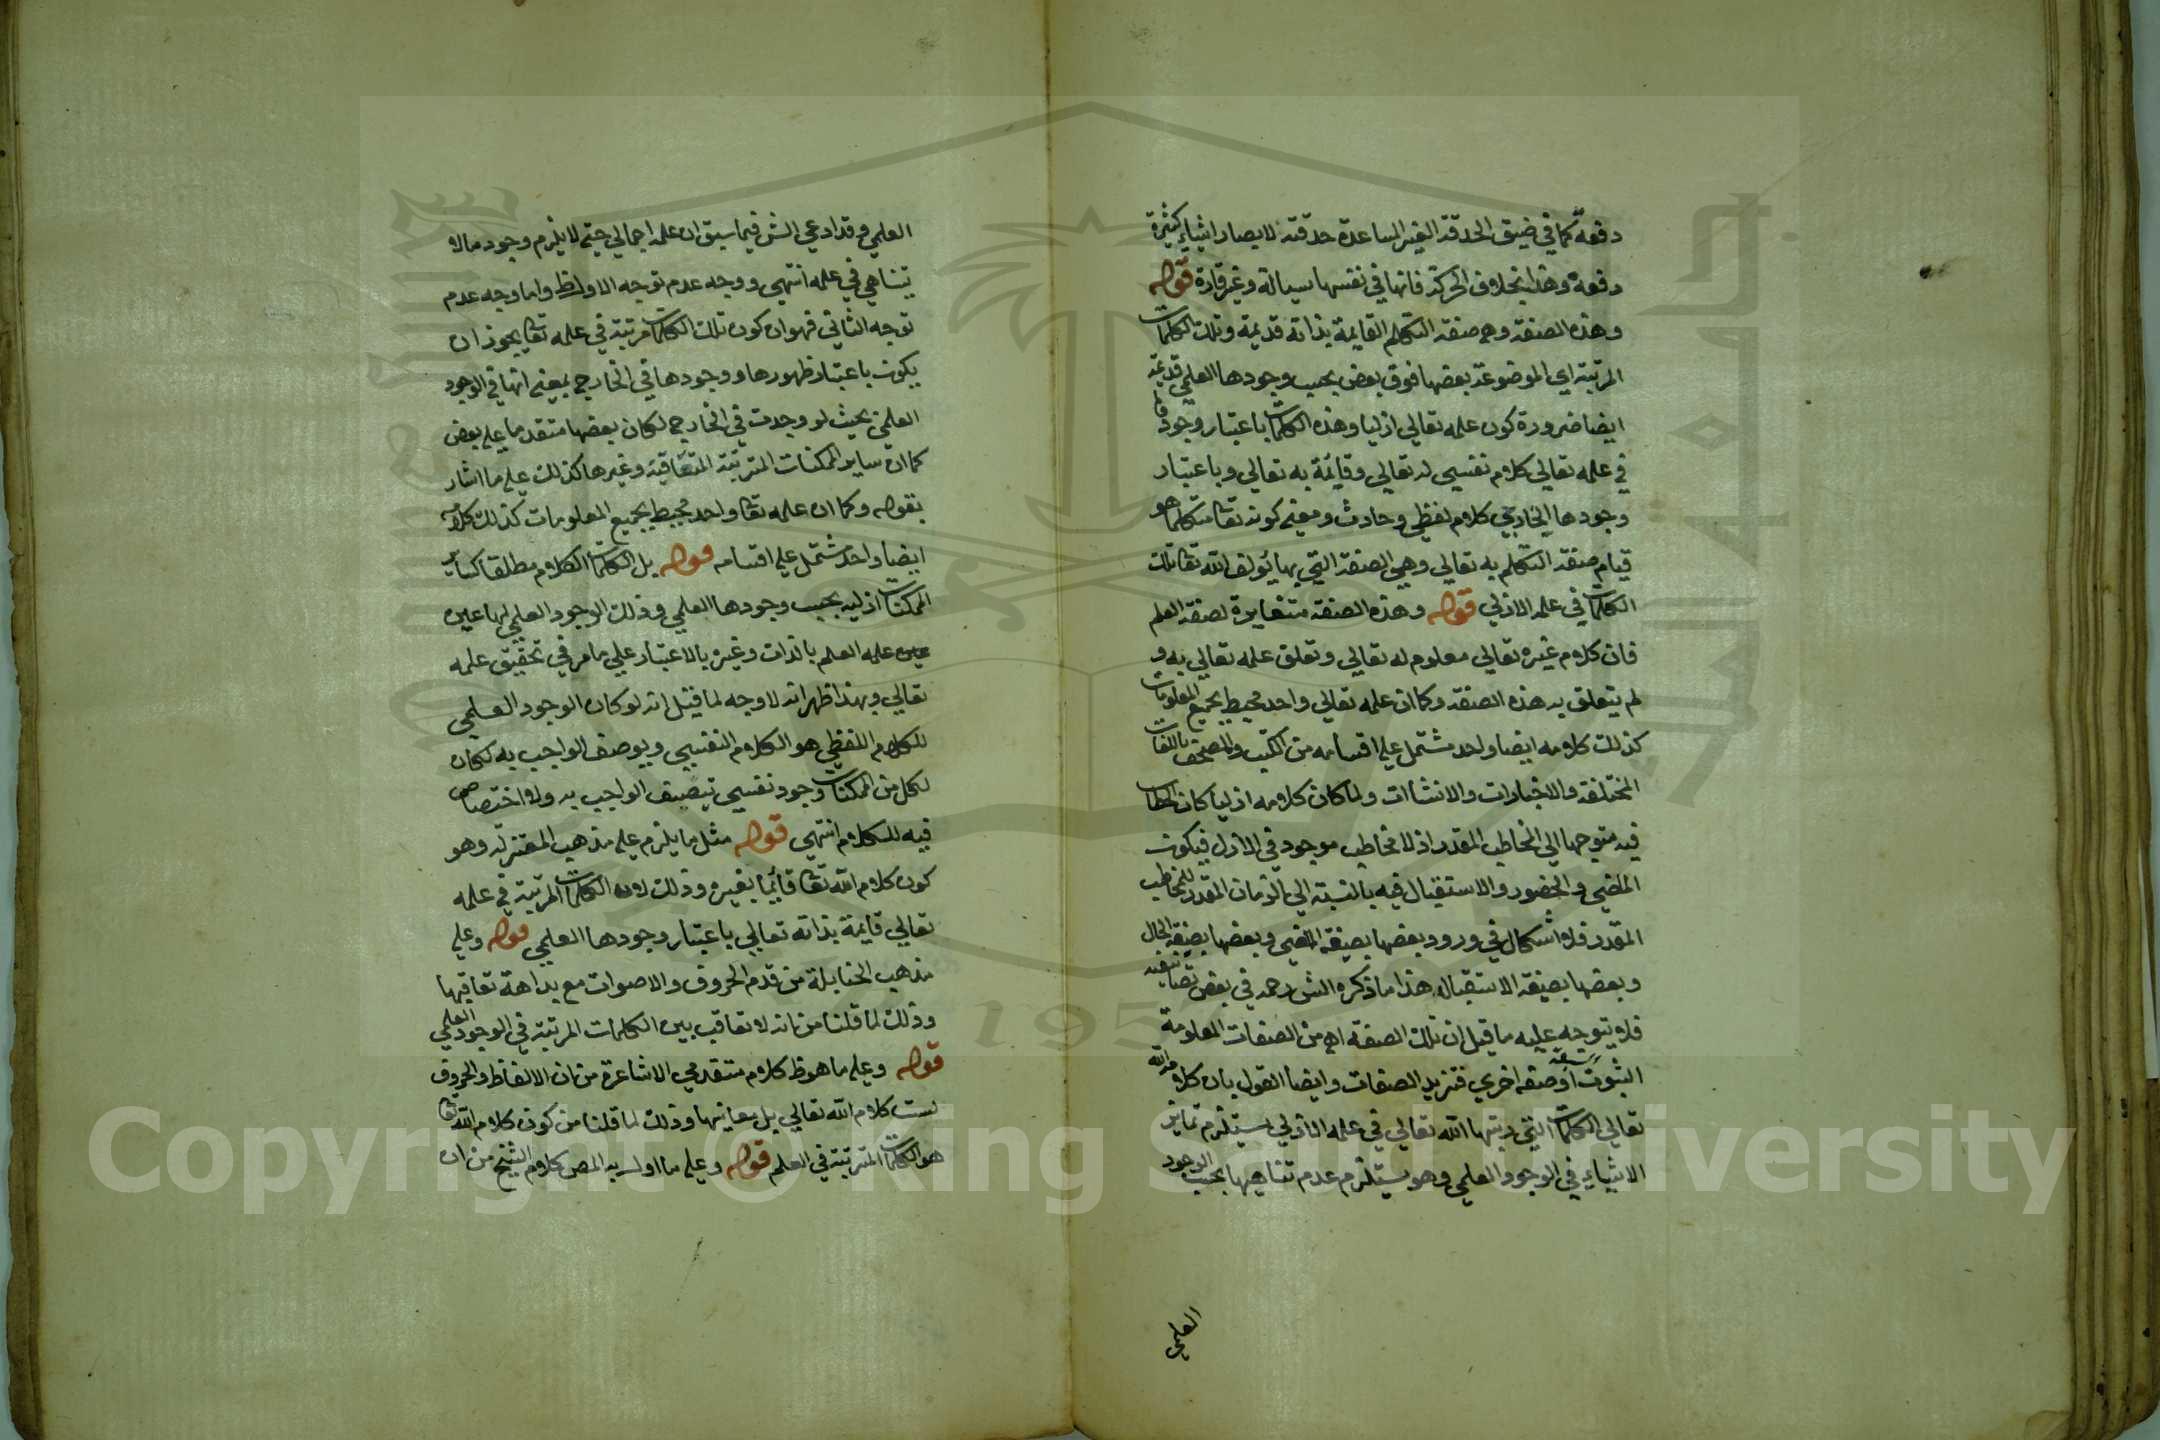 دفعة كما في ضيق الحدقة الغير المساعدة حدقته لابصار اشياء كثيرة
دفعة وهذا بخلاف الحركة فانها في نفسها سيالة وغير قارة قوله
وهذه الصفة وهي صفة التكلم القايمة بذاته قديمة وتلك الكلمات
المرتبة اي الموضوعة بعضها فوق بعض بحسب وجودها العلمي قديمة
ايضا ضرورة كون علمه تعالي ازليا وهذه الكلمات باعتبار وجودها
في علمه تعالي كلام نفسي له تعالي وقائمة به تعالي وباعتبار
وجودها الخارجي كلام لفظي وحادث ومعني كونه تعا متكلما هو
قيام صفة التكلم به تعالي وهي الصفة التي بها يؤلف الله تعا تلك
الكلمات في علمه الازلي قوله وهذه الصفة متغايرة لصفة العلم
فان كلام غيره تعالي معلوم له تعالي وتعلق علمه تعالي به و
لم يتعلق به هذه الصفة وكما ان علمه تعالي واحد محيط بجميع المعلومات
كذلك كلامه ايضا واحد مشتمل علي اقسامه من الكتب والصحف باللغات
المختلفة والاخبارات والانشاات ولما كان كلامه ازليا كان الخطاب
فيه متوجها الي المخاطب المقدر اذ لا مخاطب موجود في الازل فيكون
الماضي والحضور والاستقبال فيه بالنسبة الي الزمان المقدر للمخاطب
المقدر فلا اشكال في ورود بعضها بصيغة الماضي وبعضها بصيغة الحال
وبعضها بصيغة الاستقبال هذا ما ذكره الش رحمه في بعض تصانيفه
فلا يتوجه عليه ما قيل ان تلك الصفة اهي من الصفات المعلومة
الثبوت او صفة اخري فتزيد الصفات وايضا القول بان كلام الله
تعالي الكلمات التي رتبها الله تعالي في علمه الازلي يستلزم تمايز
الاشياء في الوجود العلمي وهو يستلزم عدم تناهيها بحسب الوجود
العلمي
العلمي وقد ادعي الش فيما سبق ان علمه اجمالي حتي لا يلزم وجود ما لا
يتناهي في علمه انتهي ووجه عدم توجه الاول ظ واما وجه عدم
توجه الثاني فهو ان كون تلك الكلمات مرتبة في علمه تعا يجوز ان
يكون باعتبار ظهورها ووجودها في الخارج بمعني انها في الوجود
العلمي بحيث لو وجدت في الخارج لكان بعضها متقدما علي بعض
كما ان ساير الممكنات المترتبة المتعاقبة وغيرها كذلك علي ما اشار
بقوله وكما ان علمه تعا واحد محيط بجميع المعلومات كذلك كلامه
ايضا واحد مشتمل علي اقسامه قوله بل الكلمات الكلام مطلقا كساير
الممكنات ازلية بحسب وجودها العلمي وذلك الوجود العلمي لها عين
عين علمه العلم بالذات وغيره بالاعتبار علي ما مر في تحقيق علمه
تعالي وبهذا ظهر انه لا وجه لما قيل انه لو كان الوجود العلمي
للكلام اللفظي هو الكلام النفسي ويوصف الواجب به لكان
لكل من الممكنات وجود نفسي يتصف الواجب به ولا اختصاص
فيه للكلام انتهي قوله مثل ما يلزم علي مذهب المعتزلة وهو
كون كلام الله تعا قائما بغيره وذلك لان الكلمات المرتبة في علمه
تعالي قايمة بذاته تعالي باعتبار وجودها العلمي قوله وعلي
مذهب الحنابلة من قدم الحروف والاصوات مع بداهة تعاقبها
وذلك لما قلنا من انه لا تعاقب بين الكلمات المرتبة في الوجود العلمي
قوله وعلي ما هو ظ كلام متقدمي الاشاعرة من ان الالفاظ والحروف
ليست كلام الله تعالي بل معانيها وذلك لما قلنا من كون كلام الله تعا
هو الكلمات المترتبة في العلم قوله وعلي ما اول به المص كلام الشيخ من ان
Copyright © King Saud University
1957